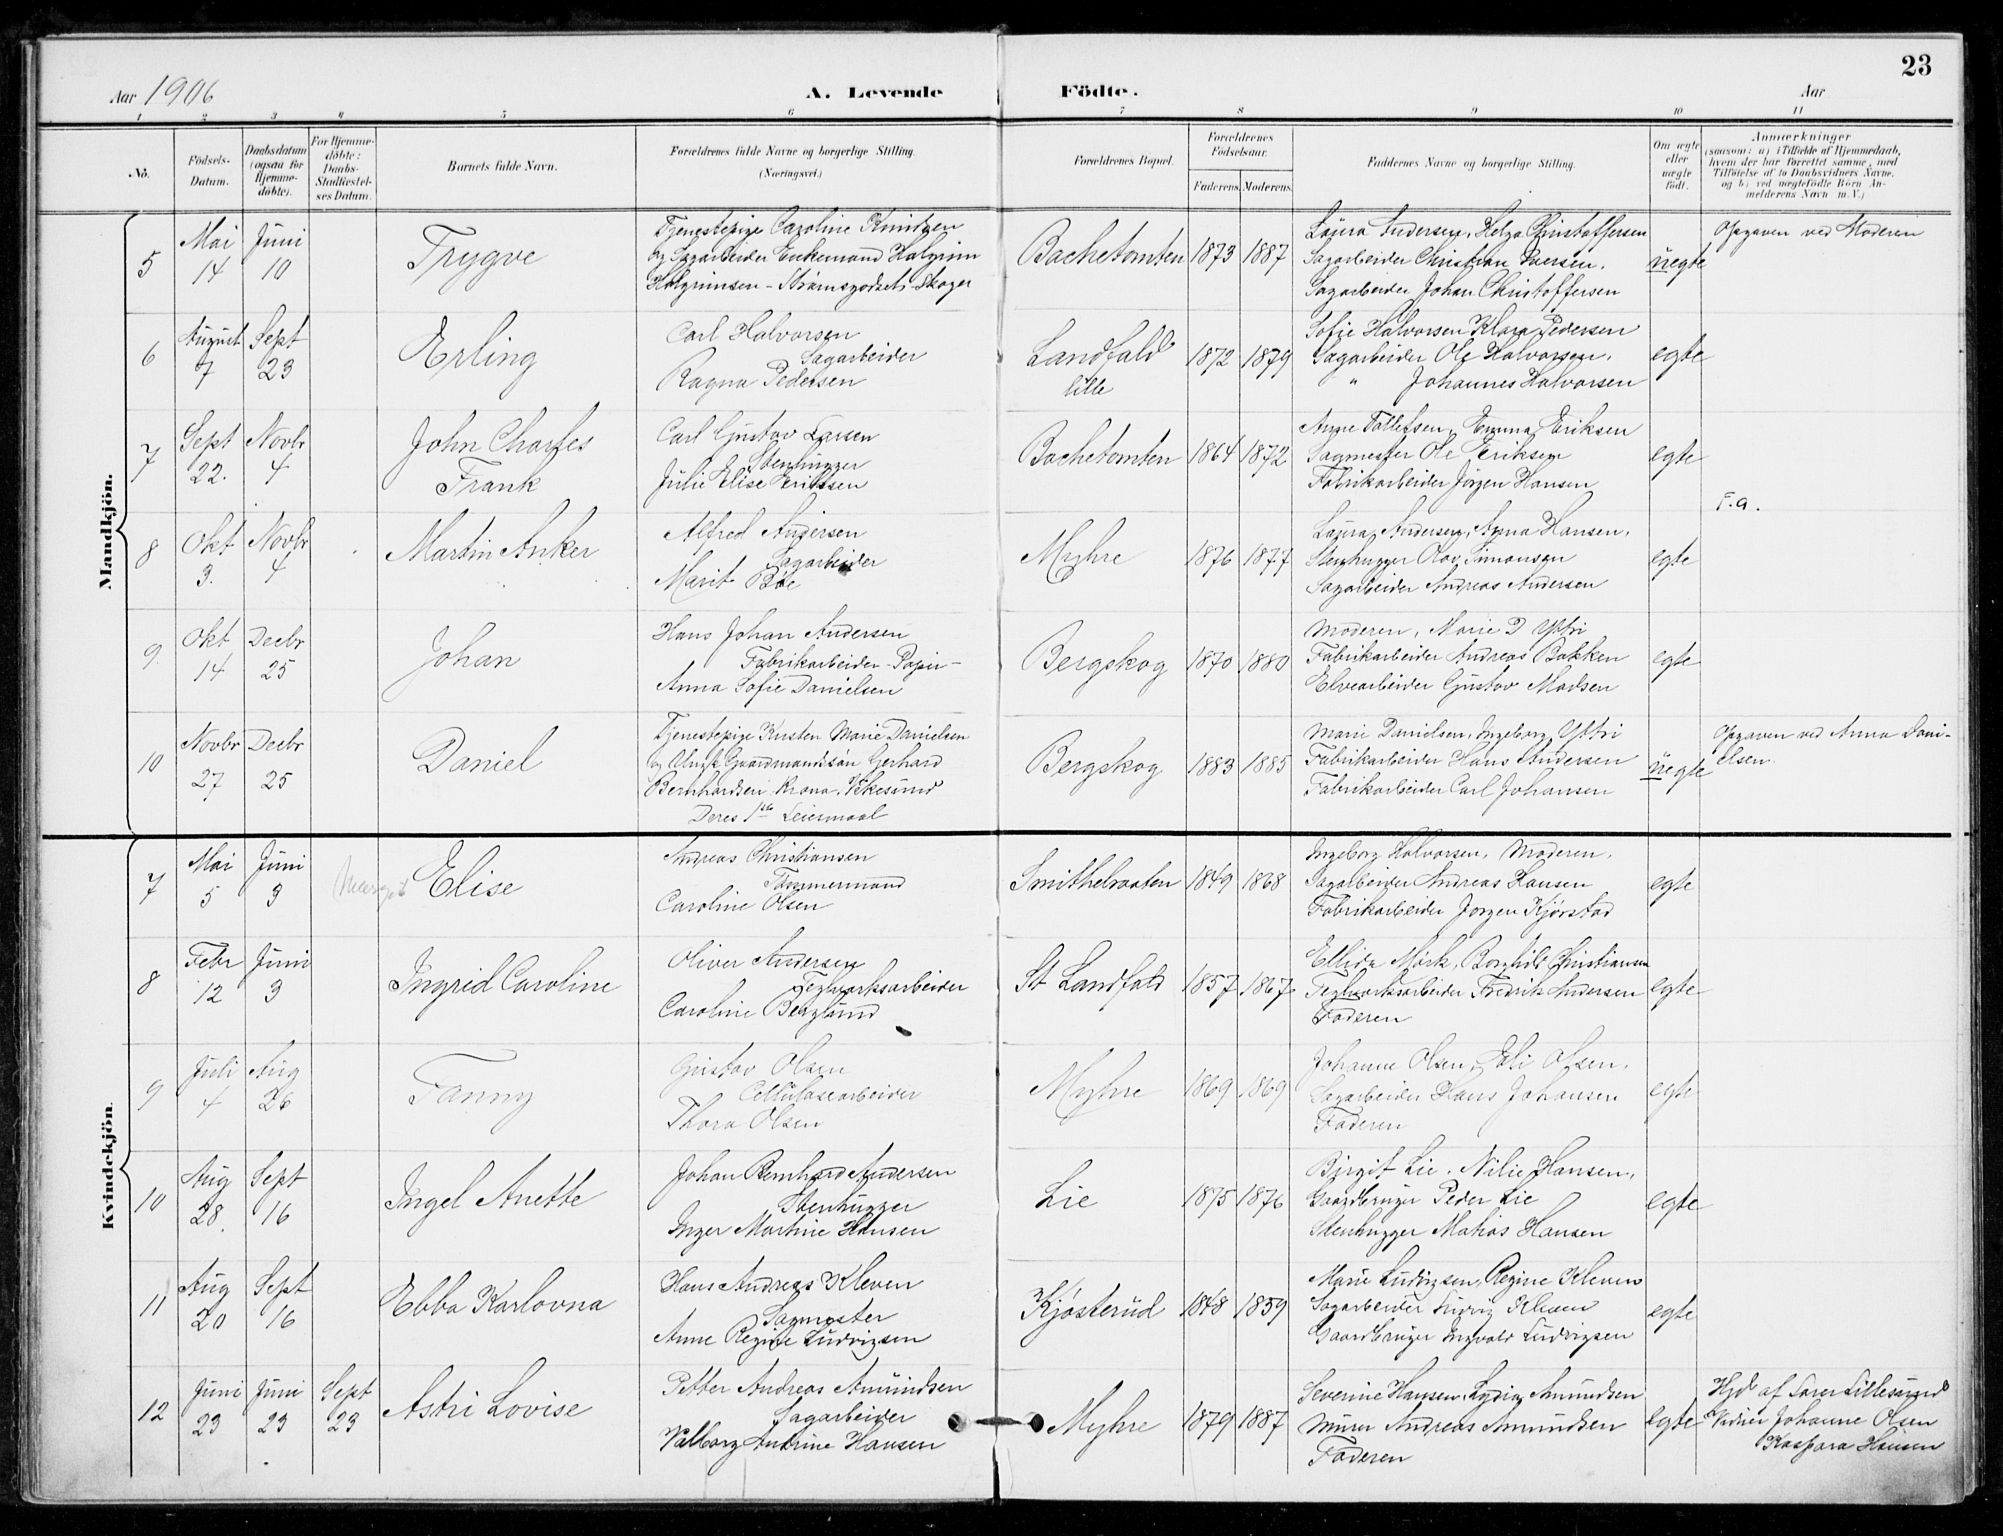 23
Aar 1906
A. Levende Födte.
Aar
1 2 3 4 5 6 7 8 9 10 11
No.
Födsels-Datum.
Daabsdatum (ogsaa for Hjemmedöbte).
For Hjemmedöbte: Daabs-Stadfæstelses Datum.
Barnets fulde Navn.
Forældrenes fulde Navne og borgerlige Stilling. (Næringsvei.)
Forældrenes Bopæl.
Forældrenes Födselsaar.
Faderens. Moderens.
Faddernes Navne og borgerlige Stilling.
Om ægte eller uægte födt.
Anmærkninger
(saasom: a) i Tilfælde af Hjemmedaab, hvem der har forrettet samme, med Tilföielse af to Daabsvidners Navne. og b) ved uægtefödte Börn Anmelderens Navn m. V.)
Mandkjön.
5 Mai 14 Juni 10 Trygve
Tjenestepige Caroline Knudsen
og Sagarbeider Enkemand Halgrim
Halgrimsen - Strømsgodset - Skoger
Bachetomten 1873 1887
Laura Andersen, Helga Christoffersen
Sagarbeider Christian Iversen.
Sagarbeider Johan Christoffersen
uegte
Opgaven ved Moderen
6 August 7 Sept 23 Erling
Carl Halvorsen
Sagarbeider
Ragna Pedersen
Landfald lille 1872 1879
Sofie Halvorsen Klara Pedersen
Sagarbeider Ole Halvorsen,
" Johannes Halvorsen
egte
7 Sept 22. Novbr 4 John Charles Frank
Carl Gustav Larsen
Stenhugger
Julie Elise Eriksen
Bachetomten 1864 1872
Anne Tollefsen, Emma Eriksen
Sagmester Ole Eriksen
Fabrikarbeider Jörgen Hansen
egte
F.a.
8 Okt 3. Novbr 4 Martin Anker
Alfred Andersen
Sagarbeider
Marit Böe
Myhre 1876 1877
Laura Andersen, Anna Hansen,
Stenhugger Olav Simonsen
Sagarbeider Andreas Andersen
egte
9. Okt 14 Decbr 25 Johan
Hans Johan Andersen
Fabrikarbeider - Papir -
Anna Sofie Danielsen
Bergskog 1870 1880
Moderen, Marie D Yttri
Fabrikarbeider Andreas Bakken
Elvearbeider Gustav Madsen
egte
10 Novbr 27 Decbr 25 Daniel
Tjenestepige Kirsten Marie Danielsen
og Ungk Gaardmandssön Gerhard
Bernhardsen - Krona - Vikesund
Deres 1ste Leiermaal
Bergskog 1883 1885
Marie Danielsen, Ingeborg Yttri
Fabrikarbeider Hans Andersen
Fabrikarbeider Carl Johansen
uegte
Opgaven ved Anna Dani-
elsen.
Kvindekjön.
7 Mai 5 Juni 3 Margit Elise
Andreas Christiansen
Tømmermand
Caroline Olsen
Smithebraaten 1849 1868
Ingeborg Halvorsen, Moderen,
Sagarbeider Andreas Hansen
Fabrikarbeider Jorgen Kjörstad
egte
8 Febr 12 Juni 3 Ingrid Caroline
Oliver Andersen
Teglverksarbeider
Caroline Berglund
St Landfald 1857 1867
Ellida Mörk, Borghild Christiansen
Teglverksarbeider Fredrik Andersen
Faderen
egte
9 Juli 4 Aug 26 Fanny
Gustav Olsen
Cellulosearbeider
Thora Olsen
Myhre 1869 1869
Johanne Olsen, Eli Olsen,
Sagarbeider Hans Johansen
Faderen
egte
10 Aug 28. Sept 16 Ingel Anette
Johan Bernhard Andersen
Stenhugger
Inger Martine Hansen
Lie 1875 1876
Birgit Lie, Nilie Hansen,
Gaardbruger Peder Lie
Stenhugger Matias Hansen
egte
11 Aug 20 Sept 16 Ebba Karlovna
Hans Andreas Kleven
Sagmester
Anne Regine Ludvigsen
Kjøsterud 1848 1859
Marie Ludvigsen, Regine Kleven
Sagarbeider Ludvig Kleven
Gaardbruger Ingvald Ludvigsen
egte
12 Juni 23 Juni 23 Sept 23 Astri Lovise
Petter Andreas Amundsen
Sagarbeider
Valborg Andrine Hansen
Myhre 1879 1887
Severine Hansen, Lydia Amundsen
Murer Andreas Amundsen
Faderen
egte
Hjd af Lærer Lillesund
Vidner Johanne Olsen
Kaspara Hansen